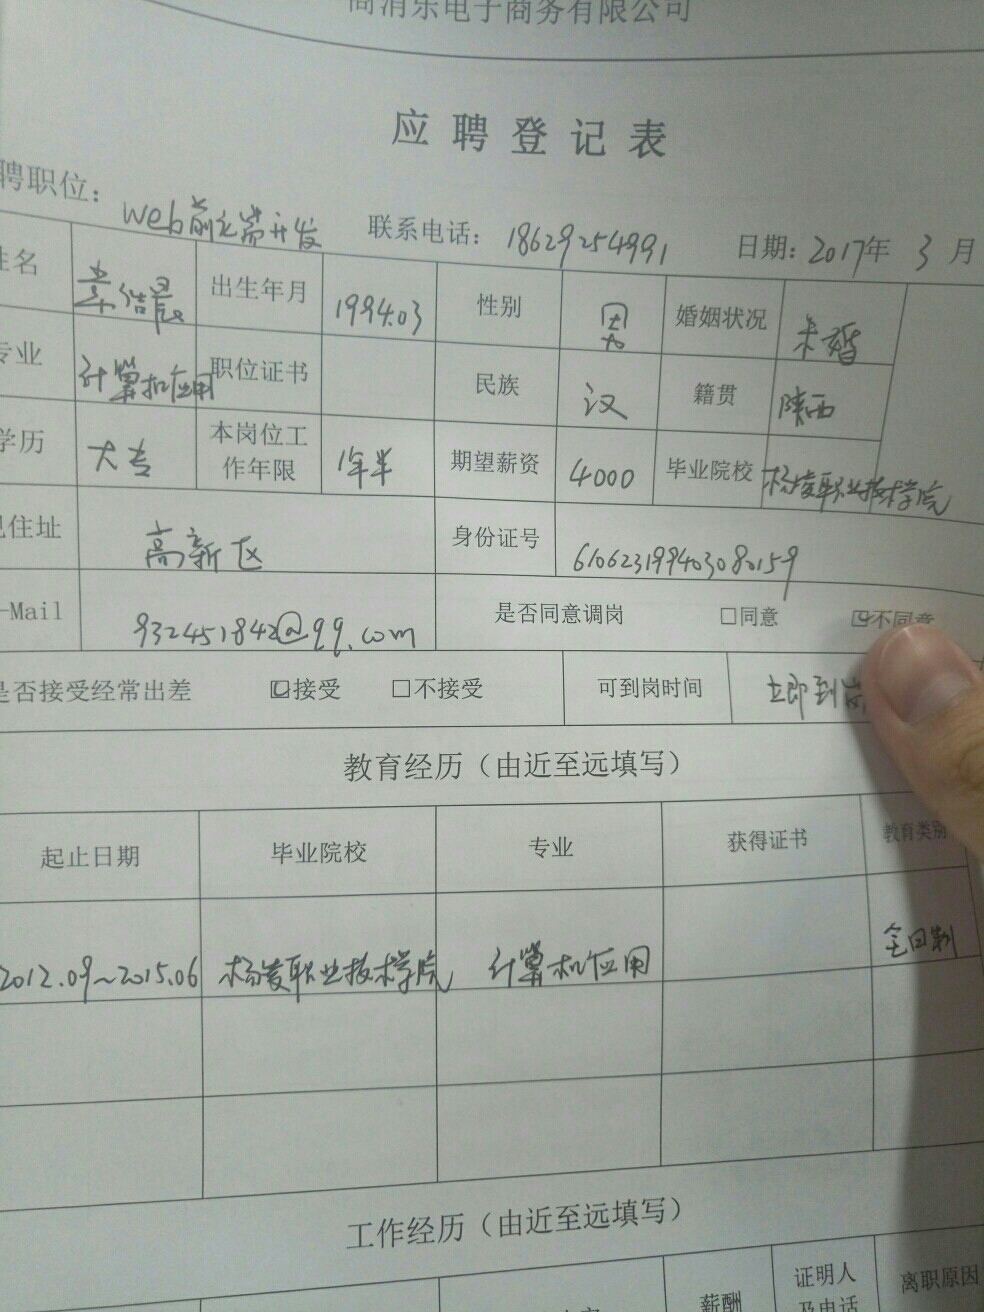 商消乐电子商务有限公司
应聘登记表
聘职位： web前端开发 联系电话： 18629254991 日期： 2017年 3 月
姓名 出生年月 1994.03 性别 男 婚姻状况 未婚
专业 计算机应用 职位证书 民族 汉 籍贯 陕西
学历 大专 本岗位工作年限 1年半 期望薪资 4000 毕业院校 杨凌职业技术学院
现住址 高新区 身份证号 610623199403080159
-Mail 932451842@qq.com 是否同意调岗 □同意 ☑不同意
是否接受经常出差 ☑接受 □不接受 可到岗时间 立即到岗
教育经历（由近至远填写）
起止日期 毕业院校 专业 获得证书 教育类别
2012.09~2015.06 杨凌职业技术学院 计算机应用 全日制
工作经历（由近至远填写）
薪酬 证明人及电话 离职原因